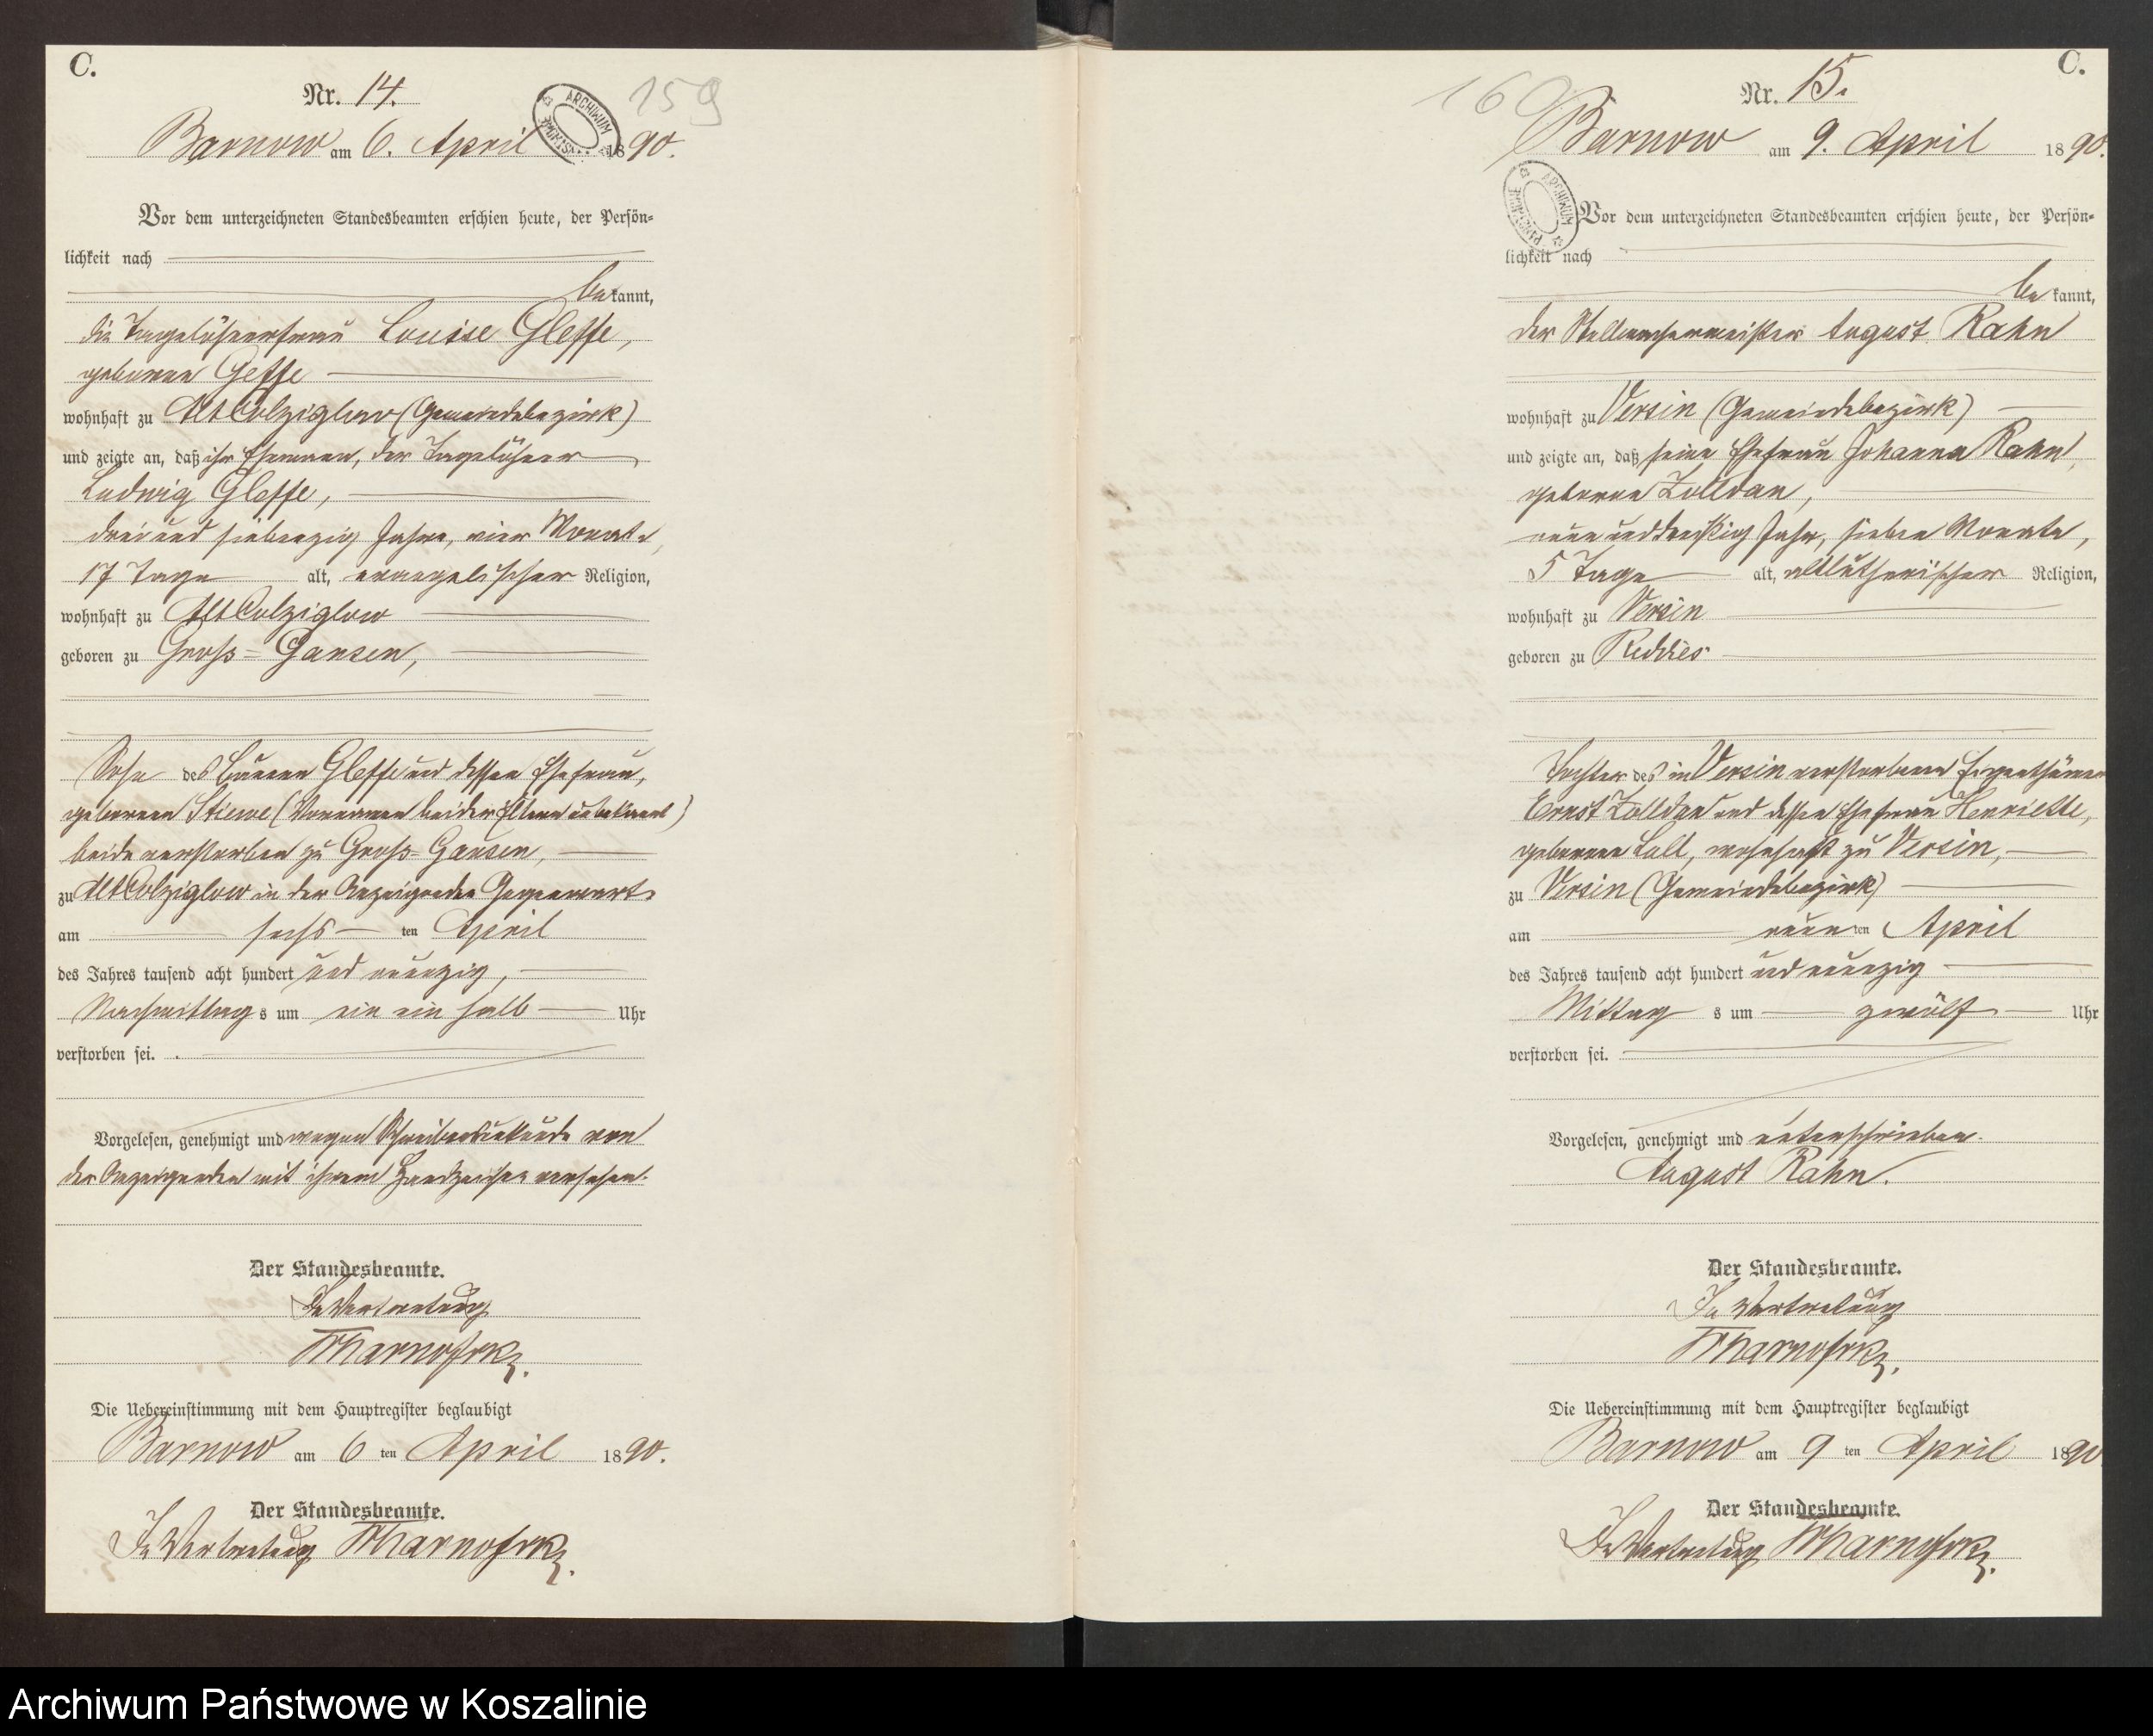 C.
Nr. 14.
159
ARCHIWUM
Barnow am 6. April 1890.
Vor dem unterzeichneten Standesbeamten erschien heute, der Persön-
lichkeit nach
bekannt,
die Tagelöhnerfrau Louise Gleffe,
geborene Geffe
wohnhaft zu Alt Colziglow (Gemeindebezirk)
und zeigte an, daß ihr Ehemann, der Tagelöhner
Ludwig Gleffe,
drei und siebenzig Jahre, vier Monate,
17 Tage alt, evangelischer Religion,
wohnhaft zu Alt Colziglow
geboren zu Groß-Gansen,
Sohn des Bauern Gleffe und dessen Ehefrau,
geborenen Stiewe (Vornamen beider Eltern unbekannt)
beide verstorben zu Groß-Gansen,
zu Alt Colziglow in der Anzeigenden Gegenwart
am sechs ten April
des Jahres tausend acht hundert und neunzig,
Nachmittags um ein ein halb Uhr
verstorben sei.
Vorgelesen, genehmigt und wegen Schreibensunkunde von
der Anzeigenden mit ihrem Handzeichen versehen.
Der Standesbeamte.
In Vertretung
Die Uebereinstimmung mit dem Hauptregister beglaubigt
Barnow am 6 ten April 1890.
Der Standesbeamte.
In Vertretung
C.
Nr. 15.
160
Barnow am 9. April 1890.
ARCHIWUM
Vor dem unterzeichneten Standesbeamten erschien heute, der Persön-
lichkeit nach
bekannt,
der Stellmachermeister August Rahn
wohnhaft zu Versin (Gemeindebezirk)
und zeigte an, daß seine Ehefrau Johanna Rahn,
geborene Zolldan,
neun und dreißig Jahr, sieben Monate,
5 Tage alt, altlutherischer Religion,
wohnhaft zu Versin
geboren zu Reddies
Tochter des in Versin verstorbenen Eigenthümer
Ernst Zolldan und dessen Ehefrau Henriette,
geborenen Lall, wohnhaft zu Versin,
zu Versin (Gemeindebezirk)
am neun ten April
des Jahres tausend acht hundert und neunzig
Mittag s um zwölf Uhr
verstorben sei.
Vorgelesen, genehmigt und unterschrieben.
August Rahn.
Der Standesbeamte.
In Vertretung
Die Uebereinstimmung mit dem Hauptregister beglaubigt
Barnow am 9 ten April 1890
Der Standesbeamte.
In Vertretung
Archiwum Państwowe w Koszalinie